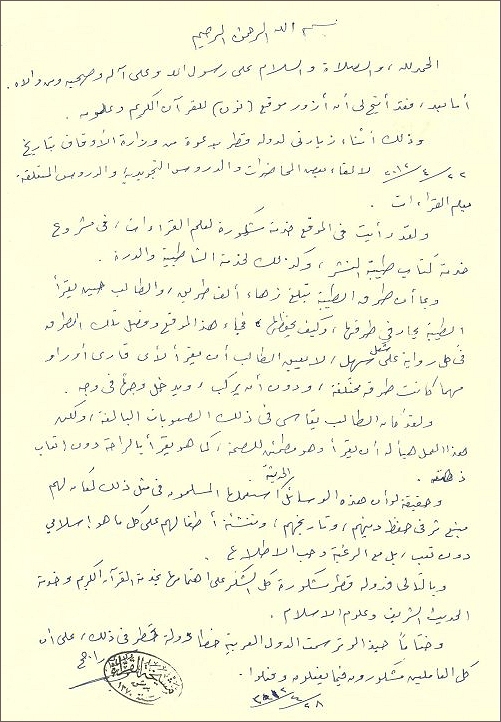 بسم الله الرحمن الرحيم
الحمد لله ، والصلاة والسلام على رسول الله وعلى آله وصحبه ومن والاه .
أما بعد ، فقد أتيح لي أن أزور موقع (ن) للقرآن الكريم وعلومه .
وذلك أثناء زيارتي لدولة قطر بدعوة من وزارة الأوقاف بتاريخ
٢٢/٤/٢٠١٢ لإلقاء بعض المحاضرات والدروس التجويدية والدروس المتعلقة
بعلم القراءات .
ولقد رأيت في الموقع خدمة مشكورة لعلم القراءات ، في مشروع
خدمة كتاب طيبة النشر ، وكذلك لخدمة الشاطبية والدرة .
وبما أن طرق الطيبة تبلغ زهاء ألف طريق ، والطالب حين يقرأ
الطيبة يحار في طرقها ، وكيف يحفظها ، فجاء هذا الموقع وفصل تلك الطرق
في كل رواية على شكل سهل ، لا يعيق الطالب أن يقرأ لأي قارئ أو راو
مهما كانت طرقه مختلفة ، ودون أن يركب ، ويدخل وجهًا في وجه .
ولقد كان الطالب يقاسي في ذلك الصعوبات البالغة ، ولكن
هذا العمل هيأ له أن يقرأ وهو مطمئن للصحة ، كما هو يقرأ بالراحة دون إتعاب
ذهنه .
وحقيقة لو أن هذه الوسائل الحديثة استعملها المسلمون في مثل ذلك لكان لهم
في حفظ دينهم ، وتاريخهم ، وتنشئة أطفالهم على كل ما هو إسلامي
دون تعب ، بل مع الرغبة وحب الاطلاع .
وبالتالي فدولة قطر مشكورة كل الشكر على اهتمامها بخدمة القرآن الكريم وخدمة
الحديث الشريف وعلوم الإسلام .
وختامًا حبذا لو ترسمت الدول العربية خطا دولة قطر في ذلك ، على أن
كل العاملين مشكورون فيما يفعلون وفعلوا .
٢٨/٤/٢٠١٢